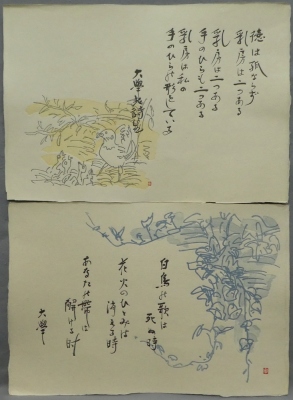 徳は孤ならず
乳房は二つある
乳房は二つある
手のひらも二つある
乳房は私の
手のひらの形をしている
大學
白鳥の歌は
死ぬ時
花火のひとみは
消える時
あなたの帯は
解ける時
大學